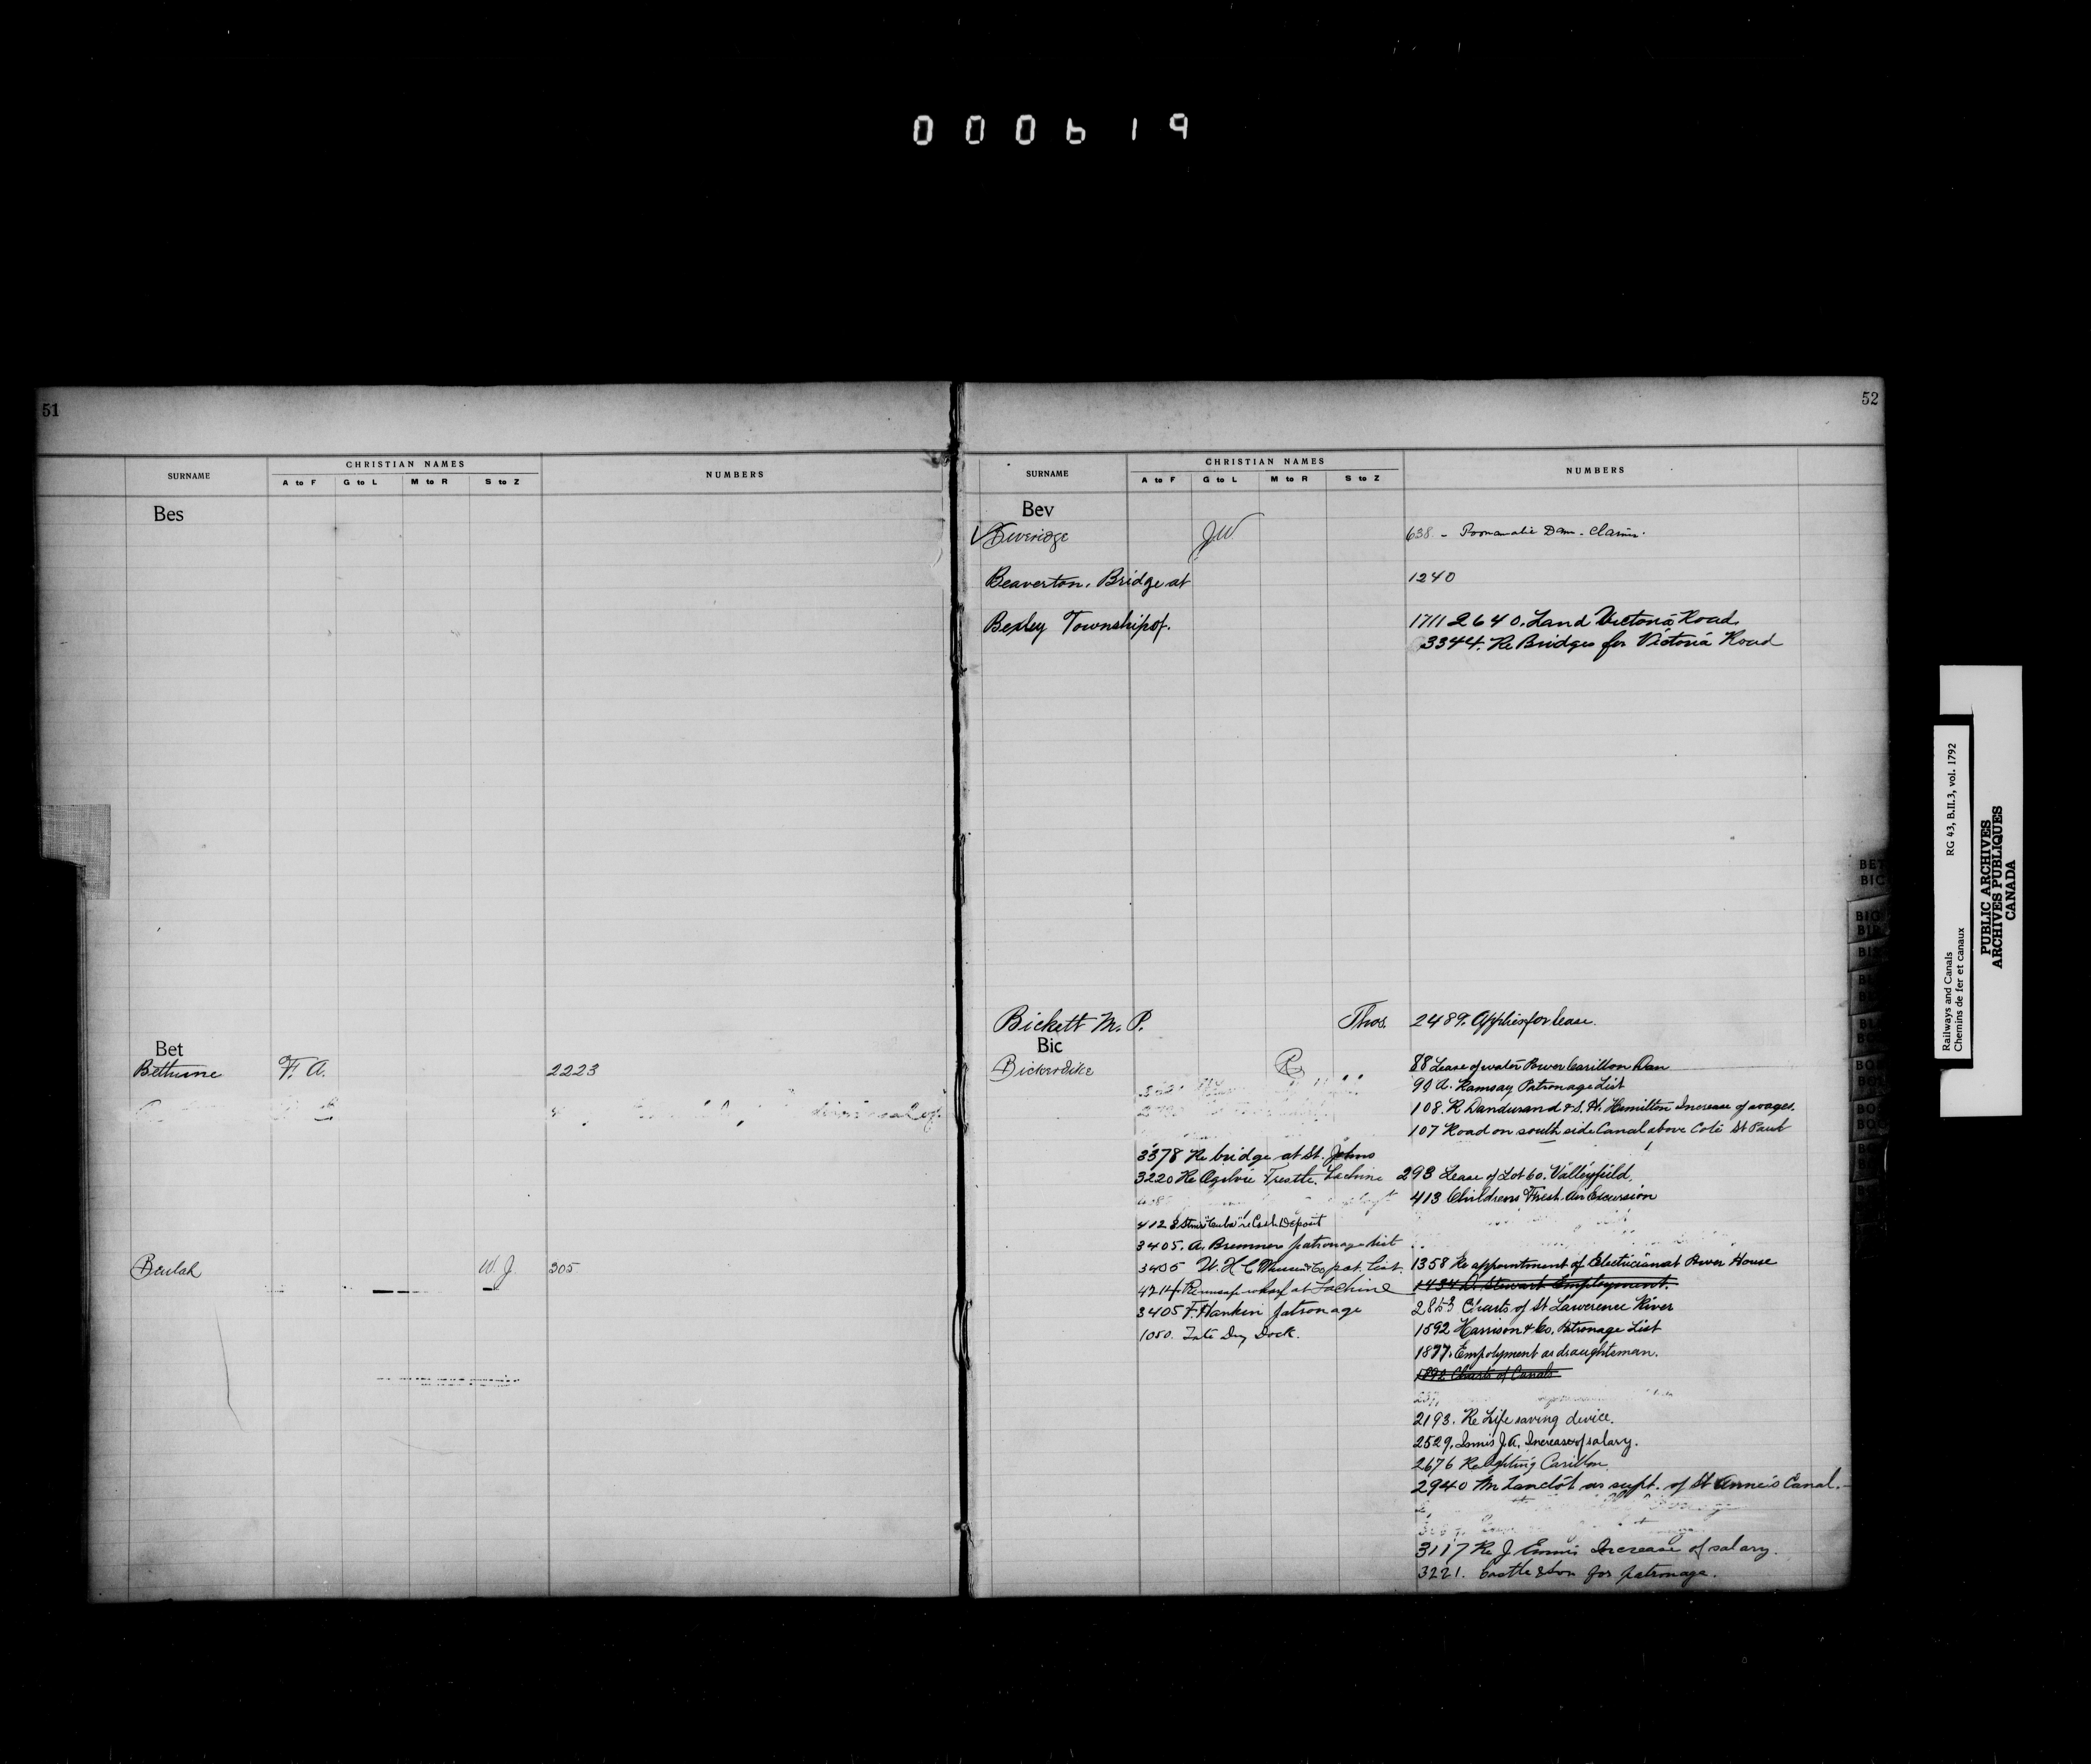 000619
51
SURNAME
CHRISTIAN NAMES
A to F G to L M to R S to Z
NUMBERS
Bes
Bet
Bethune F. A. 2223
Beulah W J 305
52
SURNAME
CHRISTIAN NAMES
A to F G to L M to R S to Z
NUMBERS
Bev
Beveridge J W 638 - Poonamalie Dam. Claim.
Beaverton, Bridge at 1240
Bexley Township of. 1711 2640. Land Victoria Road
3344. Re Bridges for Victoria Road
Bickett M. P. Thos. 2489. Applies for lease.
Bic
Bickerdike R 88 Lease of water Power Carillon Dam
90 A. Ramsay Patronage List
108. R Dandurand & S. H. Hamilton Increase of wages.
107 Road on south side Canal above Cote St Paul
3378 Re bridge at St. Johns
3220 Re Ogilvie Trestle, Lachine 293 Lease of Lot 60. Valleyfield.
413 Childrens Fresh Air Excursion
4128 Stmr "Cuba" re Cash Deposit
3405. A. Bremner patronage list
3405 pat. list. 1358 Re appointment of Electrician at Power House
4214 wharf at Lachine 1434 A Stewart Employment.
3405 F. Hankin patronage 2853 Charts of St Lawerence River
1050. Tate Dry Dock. 1592 Harrison & Co. Patronage List
1877. Employment as draughtsman.
1892 Charts of Canals
2193. Re Life saving device.
2529. Innis J. A. Increase of salary.
2676 Re lighting Carillon.
2940 M Lanctôt as supt. of St Anne's Canal.
3117 Re J Ennis Increase of salary.
3221. Castle & Son for patronage.
BET
BIC
Railways and Canals RG 43, B.II.3, vol. 1792
Chemins de fer et canaux
PUBLIC ARCHIVES
ARCHIVES PUBLIQUES
CANADA